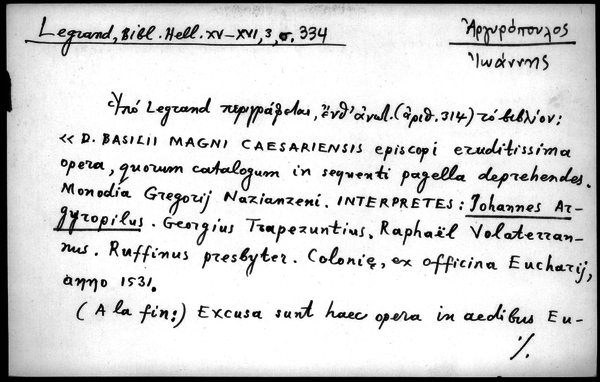 Legrand, Bibl. Hell. XV–XVI, 3, σ. 334
Ἀργυρόπουλος
Ἰωάννης
Ὑπό Legrand περιγράφεται, ἔνθ' ἀνωτ. (ἀριθ. 314) τό βιβλίον:
« D. BASILII MAGNI CAESARIENSIS episcopi eruditissima
opera, quorum catalogum in sequenti pagella deprehendes.
Monodia Gregorij Nazianzeni. INTERPRETES: Johannes Ar-
gyropilus. Georgius Trapezuntius, Raphaël Volaterran-
nus. Ruffinus presbyter. Colonię, ex officina Eucharij,
anno 1531.
(A la fin:) Excusa sunt haec opera in aedibus Eu-
./.